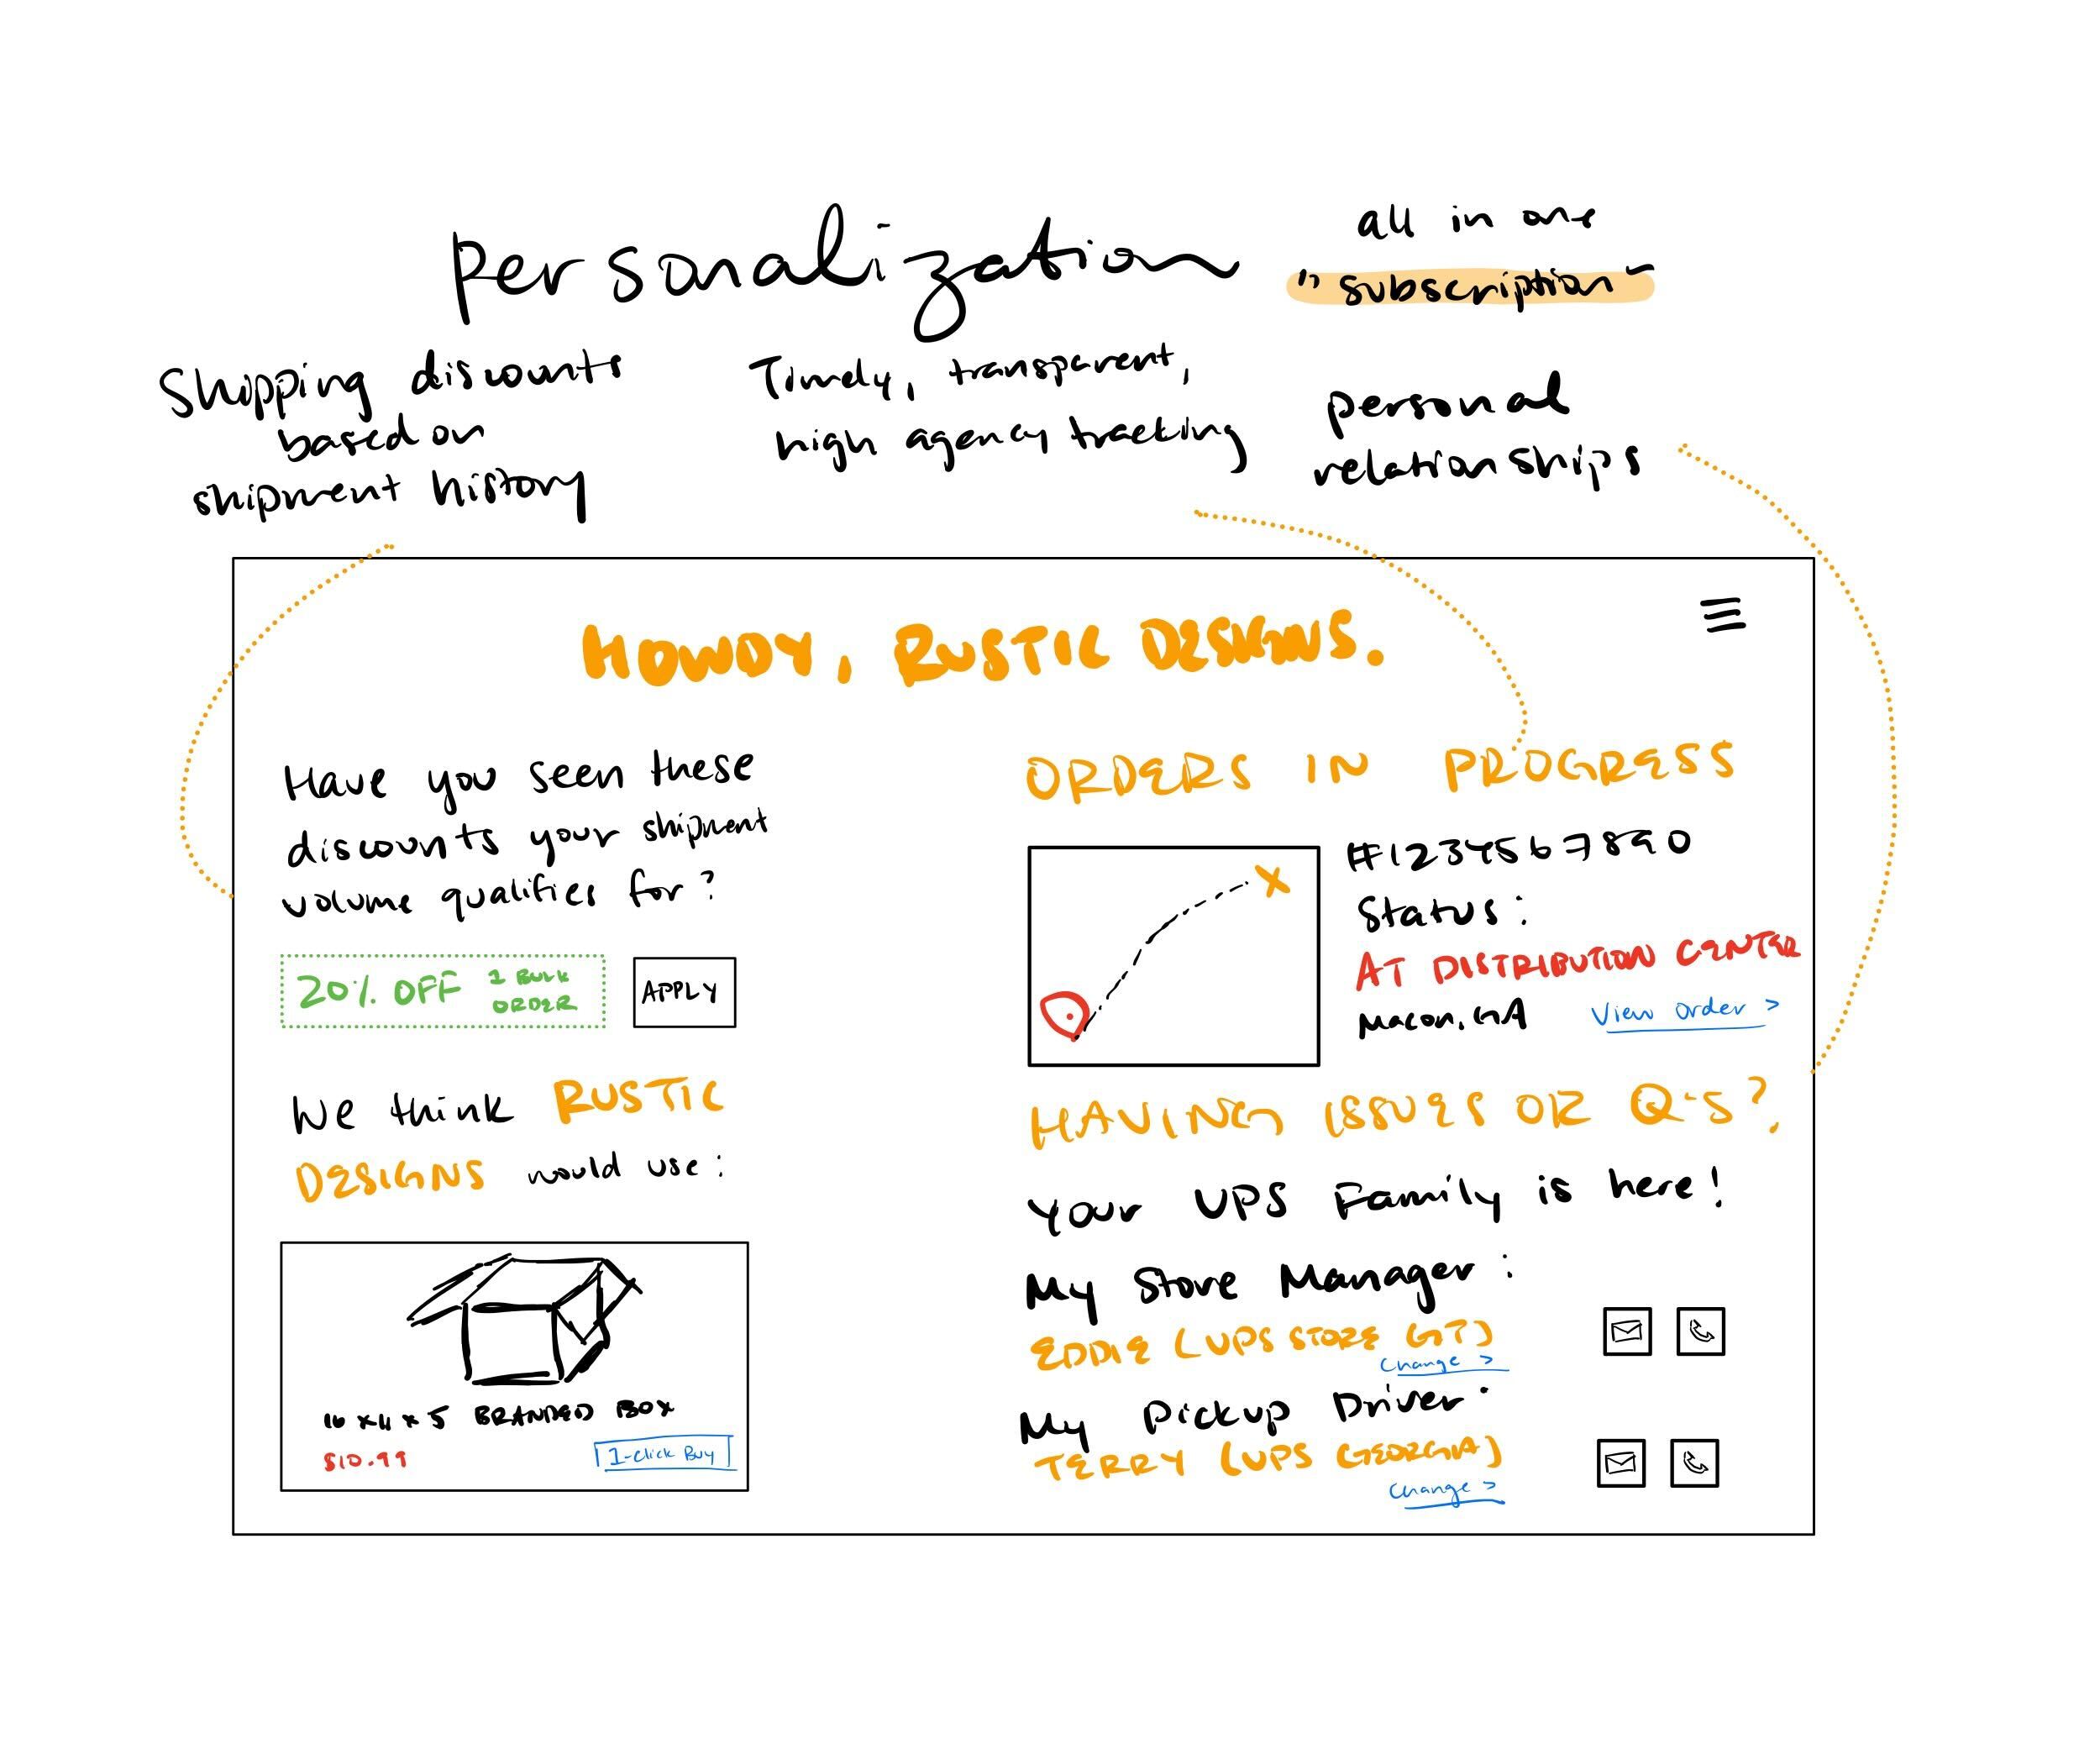 personalization
all in one
"subscription"
Shopping discounts
based on
shipment history
Timely, transparent,
high agency tracking
personal
relationships
HOWDY, RUSTIC DESIGNS.
Have you seen these
discounts your shipment
volume qualifies for?
20% OFF
1 BULK
ORDER
APPLY
We think RUSTIC
DESIGNS would use:
BRANDED BOX
$10.99
1-Click Buy
ORDERS IN PROGRESS
#1234567890
Status:
AT DISTRIBUTION CENTER
Macon, GA
View Order >
HAVING ISSUES OR Q'S?
Your UPS Family is here!
My Store Manager:
EDDIE (UPS STORE GT)
Change >
My Pickup Driver:
TERRY (UPS GEORGIA)
Change >